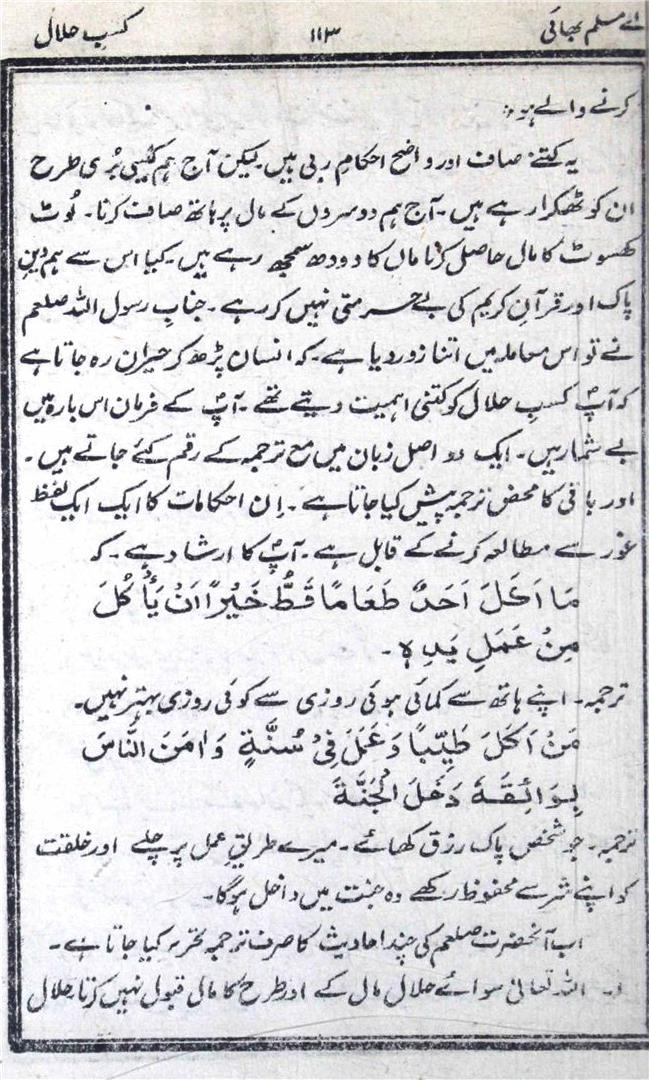 اے مسلم بھائی ۱۱۳ کسبِ حلال
کرنے والے ہو؛
یہ کتنے صاف اور واضح احکامِ ربی ہیں۔ لیکن آج ہم کیسی بُری طرح
ان کو ٹھکرا رہے ہیں۔ آج ہم دوسروں کے مال پر ہاتھ صاف کرنا۔ لُوٹ
کھسوٹ کا مال حاصل کرنا ماں کا دودھ سمجھ رہے ہیں۔ کیا اس سے ہم دینِ
پاک اور قرآن کریم کی بے حرمتی نہیں کر رہے۔ جنابِ رسول اللہ صلعم
نے تو اس معاملہ میں اتنا زور دیا ہے۔ کہ انسان پڑھ کر حیران رہ جاتا ہے
کہ آپؐ کسبِ حلال کو کتنی اہمیت دیتے تھے۔ آپؐ کے فرمان اس بارہ میں
بے شمار ہیں۔ ایک دو اصل زبان میں مع ترجمہ کے رقم کئے جاتے ہیں۔
اور باقی کا محض ترجمہ پیش کیا جاتا ہے۔ اِن احکامات کا ایک ایک لفظ
غور سے مطالعہ کرنے کے قابل ہے۔ آپؐ کا ارشاد ہے۔ کہ
مَا اَکَلَ اَحَدٌ طَعَامًا قَطُّ خَیْرًا اَنْ یَأْکُلَ
مِنْ عَمَلِ یَدِہٖ۔
ترجمہ۔ اپنے ہاتھ سے کمائی ہوئی روزی سے کوئی روزی بہتر نہیں۔
مَنْ اَکَلَ طَیِّبًا وَعَمِلَ فِیْ سُنَّةٍ وَاٰمَنَ النَّاسَ
بِوَائِقَهٗ دَخَلَ الْجَنَّةَ
ترجمہ۔ جو شخص پاک رزق کھائے۔ میرے طریقِ عمل پر چلے اور خلقت
کو اپنے شر سے محفوظ رکھے وہ جنت میں داخل ہوگا۔
اب آنحضرت صلعم کی چند احادیث کا صرف ترجمہ تحریر کیا جاتا ہے۔
اللہ تعالیٰ سوائے حلال مال کے اور طرح کا مال قبول نہیں کرتا۔ حلال